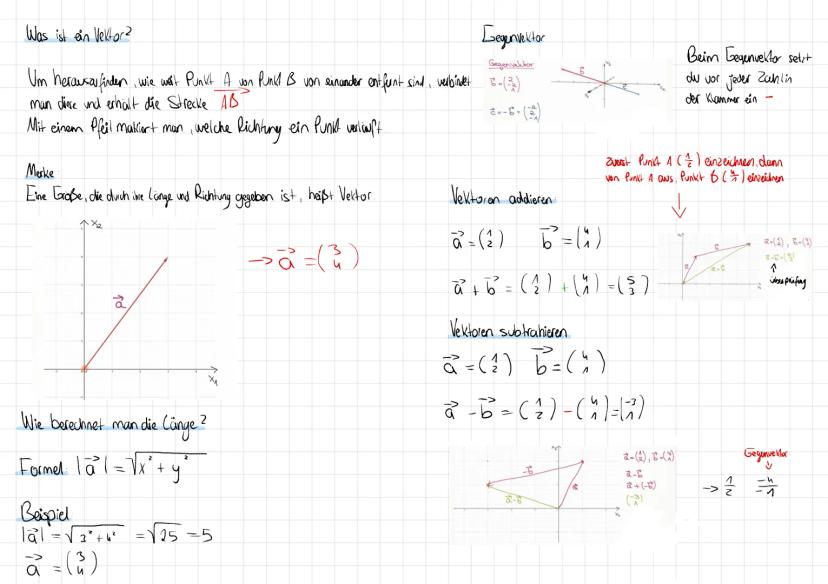 Was ist ein Vektor?
Um herauszufinden, wie weit Punkt A von Punkt B von einander entfernt sind, verbindet
man diese und erhält die Strecke AB
Mit einem Pfeil makiert man, welche Richtung ein Punkt verläuft
Merke
Eine Größe, die durch ihre Länge und Richtung gegeben ist, heißt Vektor
x₂
a
x₁
→ a = (3 4)
Wie berechnet man die Länge?
Formel |a| = √x² + y²
Beispiel
|a| = √3² + 4² = √25 = 5
a = (3 4)
Gegenvektor
Gegenvektor
Beim Gegenvektor setzt
du vor jeder Zahl in
der Klammer ein -
zuerst Punkt A (1 2) einzeichnen, dann
von Punkt A aus, Punkt B (4 1) einzeichnen
Vektoren addieren
a = (1 2) b = (4 1)
a + b = (1 2) + (4 1) = (5 3)
überprüfung
Vektoren subtrahieren
a = (1 2) b = (4 1)
a - b = (1 2) - (4 1) = (-3 1)
-b
a
a-b
a = (1 2), b = (4 1)
a-b
a+(-b)
(-3 1)
Gegenvektor
→ 1 2 -4 -1